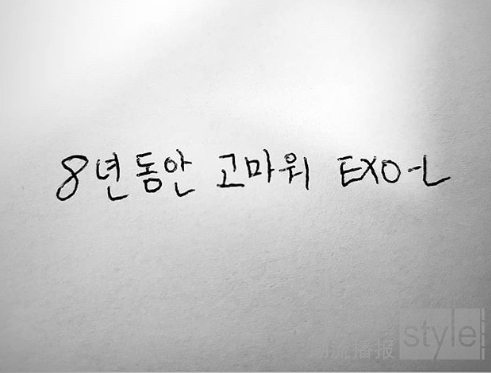 8년동안 고마워 EXO-L
style